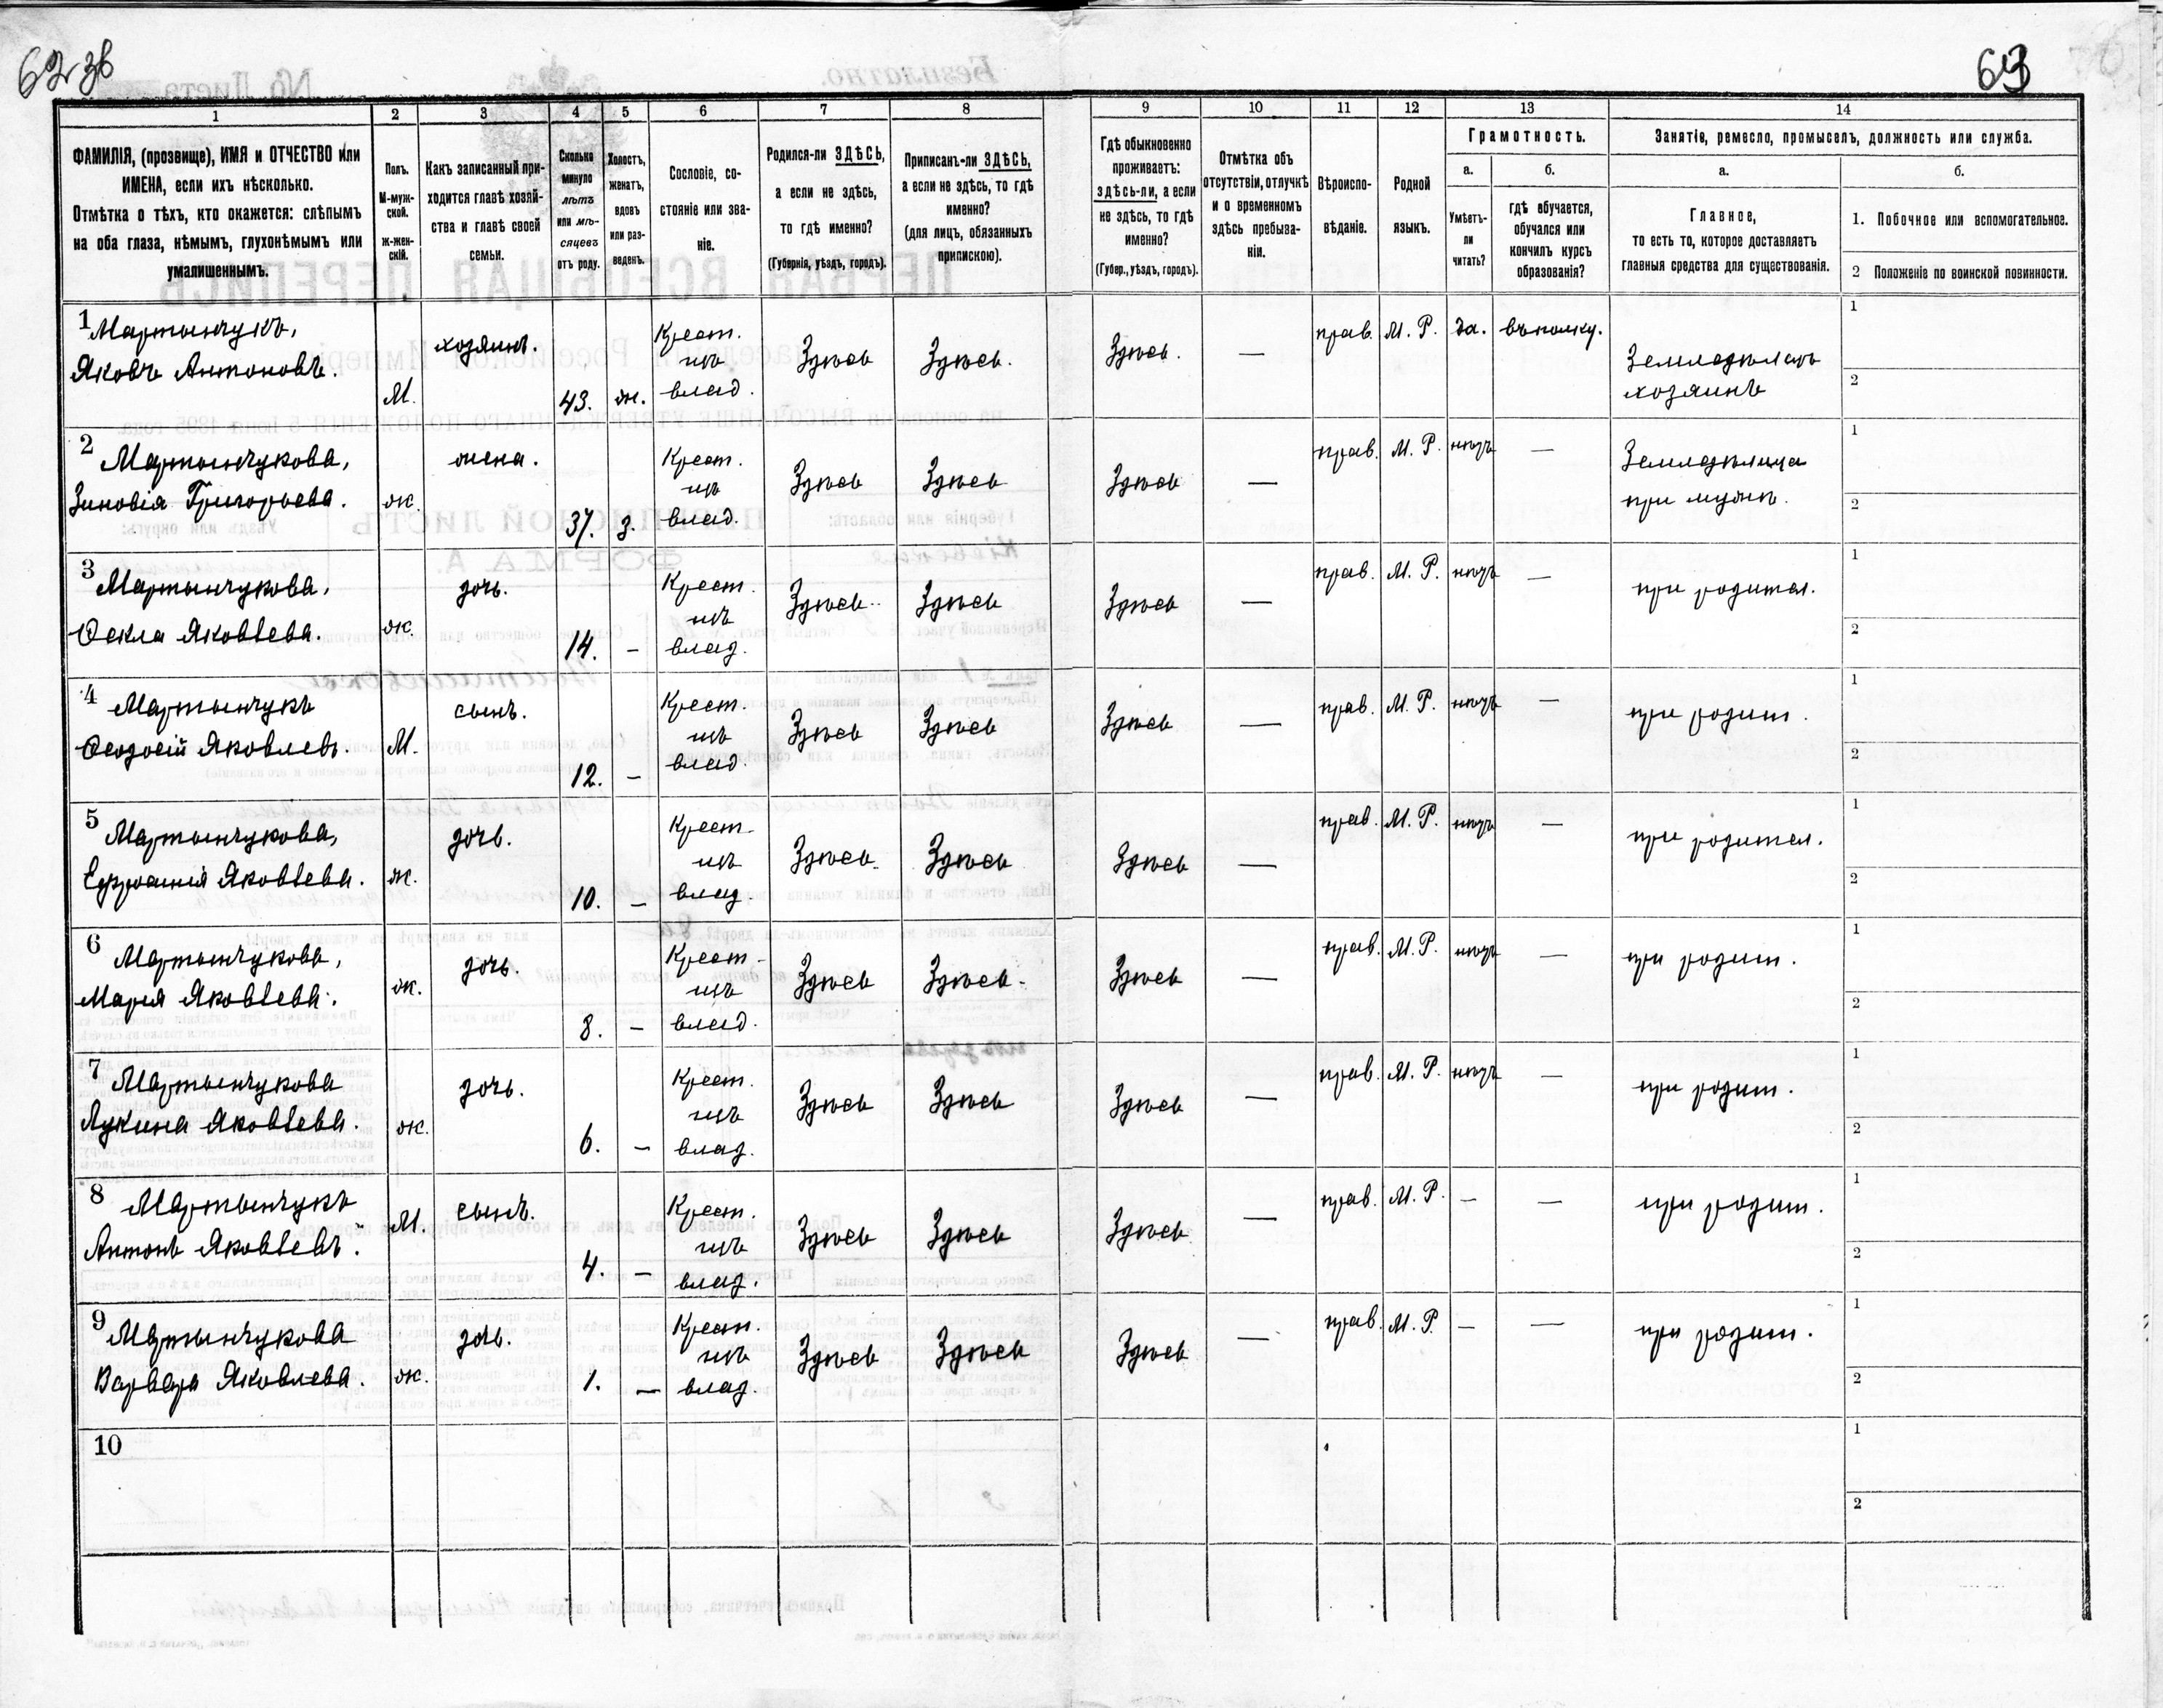 62 зв
63
1
2
3
4
5
6
7
8
9
10
11
12
13
14
ФАМИЛІЯ, (прозвище), ИМЯ и ОТЧЕСТВО или
ИМЕНА, если ихъ нѣсколько.
Отмѣтка о тѣхъ, кто окажется: слѣпымъ
на оба глаза, нѣмымъ, глухонѣмымъ или
умалишеннымъ.
Полъ.
М-муж-
ской.
ж-жен-
скій.
Какъ записанный при-
ходится главѣ хозяй-
ства и главѣ своей
семьи.
Сколько
минуло
лѣтъ
или мѣ-
сяцевъ
отъ роду.
Холостъ,
женатъ,
вдовъ
или раз-
веденъ.
Сословіе, со-
стояніе или зва-
ніе.
Родился-ли ЗДѢСЬ,
а если не здѣсь,
то гдѣ именно?
(Губернія, уѣздъ, городъ).
Приписанъ-ли ЗДѢСЬ,
а если не здѣсь, то гдѣ
именно?
(для лицъ, обязанныхъ
припискою).
Гдѣ обыкновенно
проживаетъ:
здѣсь-ли, а если
не здѣсь, то гдѣ
именно?
(Губер., уѣздъ, городъ).
Отмѣтка объ
отсутствіи, отлучкѣ
и о временномъ
здѣсь пребыва-
ніи.
Вѣроиспо-
вѣданіе.
Родной
языкъ.
Грамотность.
а.
б.
Умѣетъ-
ли
читать?
гдѣ обучается,
обучался или
кончилъ курсъ
образованія?
Занятіе, ремесло, промыселъ, должность или служба.
а.
б.
Главное,
то есть то, которое доставляетъ
главныя средства для существованія.
1. Побочное или вспомогательное.
2 Положеніе по воинской повинности.
1 Мартынчукъ,
Яковъ Антоновъ.
М.
хозяинъ.
43.
ж.
Крест.
изъ
влад.
Здѣсь
Здѣсь.
Здѣсь.
—
прав.
М. Р.
да.
въ полку.
Земледѣлецъ
хозяинъ
1
2
2 Мартынчукова,
Зиновія Григорьева.
ж.
жена.
37.
з.
Крест.
изъ
влад.
Здѣсь
Здѣсь
Здѣсь
—
прав.
М. Р.
нѣтъ
—
Земледѣлица
при мужѣ.
1
2
3 Мартынчукова,
Ѳекла Яковлева.
ж.
дочь.
14.
–
Крест.
изъ
влад.
Здѣсь
Здѣсь
Здѣсь
—
прав.
М. Р.
нѣтъ
—
при родител.
1
2
4 Мартынчукъ
Ѳеодосій Яковлевъ.
М.
сынъ.
12.
–
Крест.
изъ
влад.
Здѣсь
Здѣсь
Здѣсь
—
прав.
М. Р.
нѣтъ
—
при родит.
1
2
5 Мартынчукова,
Ефросинія Яковлева.
ж.
дочь.
10.
–
Крест.
изъ
влад.
Здѣсь
Здѣсь
Здѣсь
—
прав.
М. Р.
нѣтъ
—
при родител.
1
2
6 Мартынчукова,
Марія Яковлева.
ж.
дочь.
8.
–
Крест.
изъ
влад.
Здѣсь
Здѣсь
Здѣсь
—
прав.
М. Р.
нѣтъ
—
при родит.
1
2
7 Мартынчукова
Лукина Яковлева.
ж.
дочь.
6.
–
Крест.
изъ
влад.
Здѣсь
Здѣсь
Здѣсь
—
прав.
М. Р.
нѣтъ
—
при родит.
1
2
8 Мартынчукъ
Антонъ Яковлевъ.
М.
сынъ.
4.
–
Крест.
изъ
влад.
Здѣсь
Здѣсь
Здѣсь
—
прав.
М. Р.
–
—
при родит.
1
2
9 Мартынчукова
Варвара Яковлева.
ж.
дочь.
1.
–
Крест.
изъ
влад.
Здѣсь
Здѣсь
Здѣсь
—
прав.
М. Р.
–
—
при родит.
1
2
10
1
2